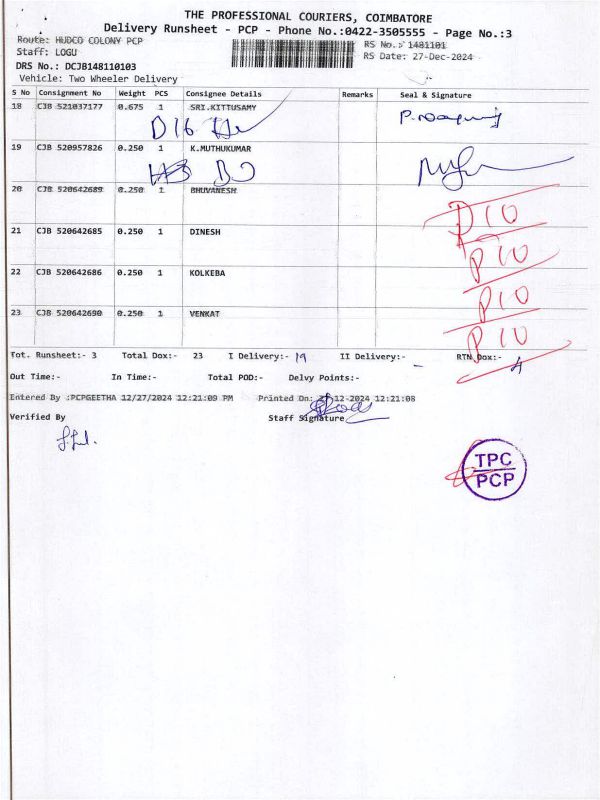 THE PROFESSIONAL COURIERS, COIMBATORE
Delivery Runsheet - PCP - Phone No.:0422-3505555 - Page No.:3
Route: HUDCO COLONY PCP
RS No.: 1481101
Staff: LOGU
RS Date: 27-Dec-2024
DRS No.: DCJB148110103
Vehicle: Two Wheeler Delivery
S No Consignment No Weight PCS Consignee Details Remarks Seal & Signature
18 CJB 521037177 0.675 1 SRI.KITTUSAMY
D16
19 CJB 520957826 0.250 1 K.MUTHUKUMAR
20 CJB 520642689 0.250 1 BHUVANESH
P10
21 CJB 520642685 0.250 1 DINESH
P10
22 CJB 520642686 0.250 1 KOLKEBA
P10
23 CJB 520642690 0.250 1 VENKAT
P10
Tot. Runsheet:- 3 Total Dox:- 23 I Delivery:- 19 II Delivery:- - RTN Dox:- 4
Out Time:- In Time:- Total POD:- Delvy Points:-
Entered By :PCPGEETHA 12/27/2024 12:21:09 PM Printed On: 12-2024 12:21:08
Verified By Staff Signature
TPC
PCP